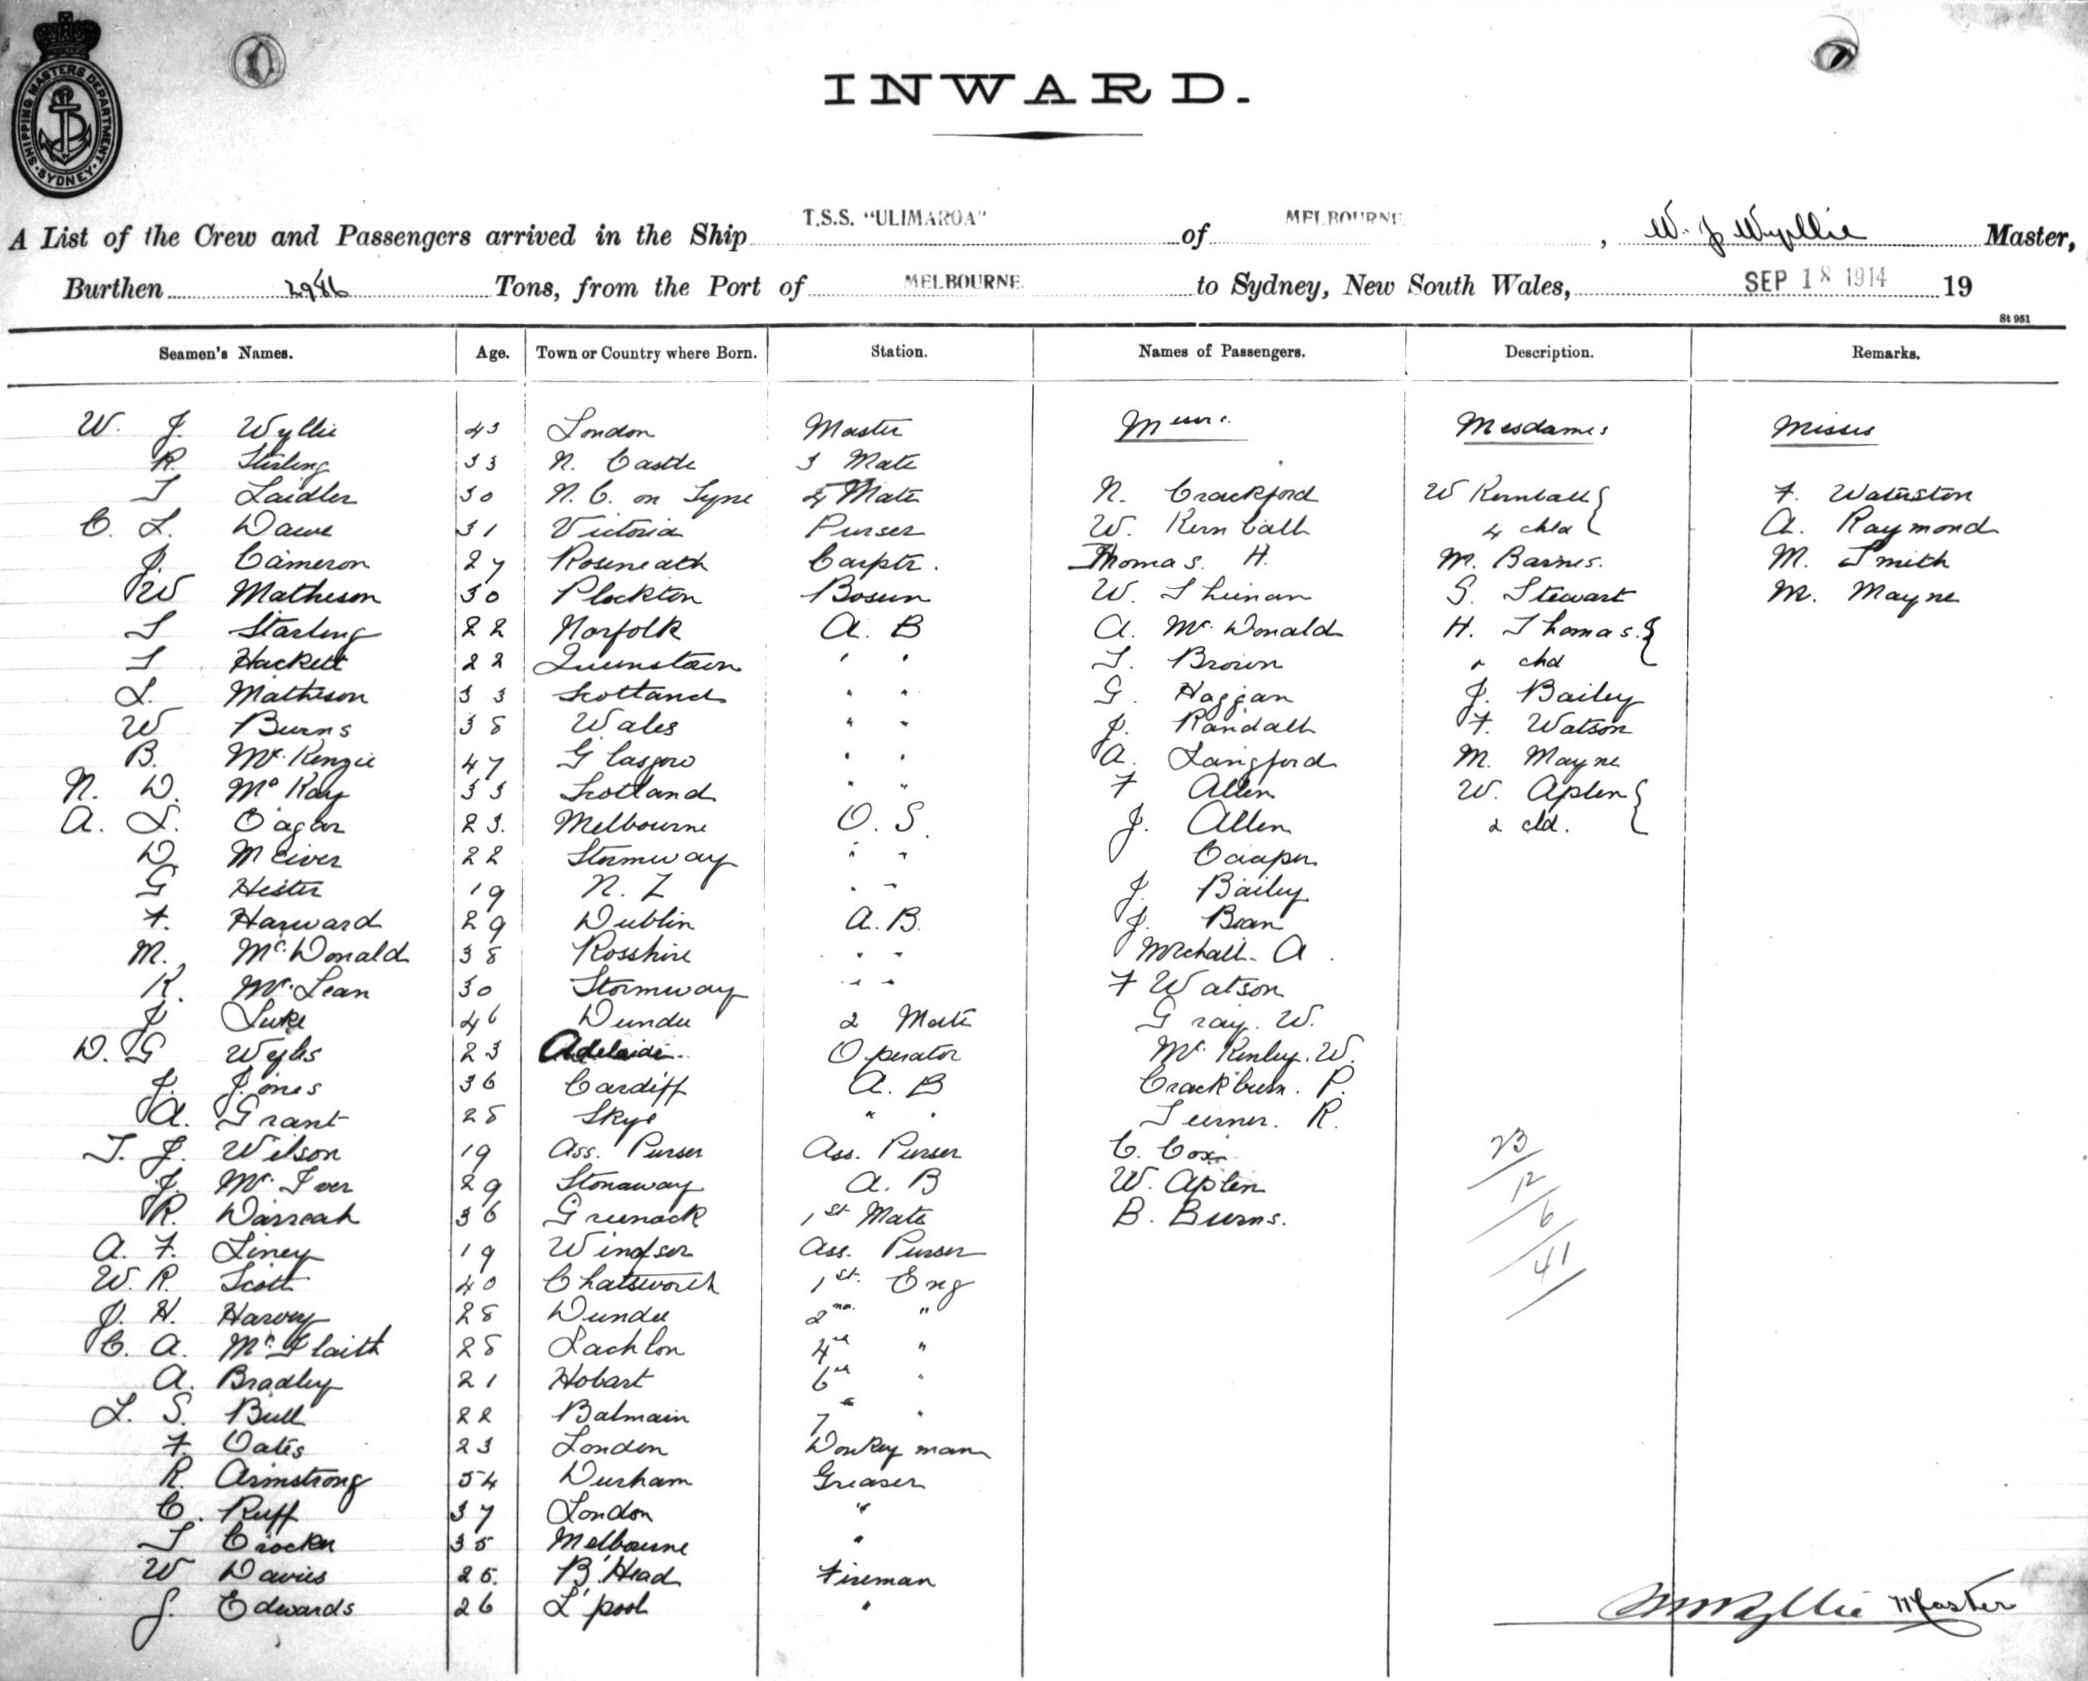 SHIPPING MASTERS DEPARTMENT. SYDNEY
INWARD.
A List of the Crew and Passengers arrived in the Ship T.S.S. "ULIMAROA" of MELBOURNE, W. J Wyllie Master,
Burthen 2986 Tons, from the Port of MELBOURNE to Sydney, New South Wales, SEP 18 1914 19
St 951
Seamen's Names. Age. Town or Country where Born. Station. Names of Passengers. Description. Remarks.
W. J. Wyllie 43 London Master Messrs. Mesdames Misses
R. Stirling 33 N. Castle 3 Mate
T Laidler 30 N. C. on Tyne 4 Mate N. Crackford W Kernball { F. Waterston
C. L. Dawe 31 Victoria Purser W. Kernball 4 chld A. Raymond
J. Cameron 27 Roseneath Carptr. Thomas. H. M. Barnes. M. Smith
W Matheson 30 Plockton Bosun W. S. Stewart M. Mayne
S Starling 22 Norfolk A. B A. McDonald H. Thomas. }
T Hackett 22 Queenstown " " T. Brown 2 chd
L. Matheson 33 Scotland " " G. Haggan J. Bailey
W Burns 38 Wales " " J. Randall F. Watson
B. McKenzie 47 Glasgow " " A. Langford M. Mayne
N. D. McKay 33 Scotland " " F Allen W. Aplen {
A. L. 23. Melbourne O. S. J. Allen 2 cld.
D. McIver 22 Stornway " " Cooper
G Hester 19 N. Z " " J. Bailey
F. Harward 29 Dublin A. B. J. Bean
M. McDonald 38 Rosshire " " A.
K. McLean 30 Stornway " " F Watson
J Luke 46 Dundee 2 Mate Gray. W.
D. G Wyles 23 Adelaide. Operator McKenley. W.
J. Jones 36 Cardiff A. B Crackburn. P.
A. Grant 28 Skye " " Turner. R.
T. J. Wilson 19 Ass. Purser Ass. Purser C. Cox 23
J. McIver 29 Stonaway A. B W. Aplen 12
R. Darroch 36 Greenock 1st Mate B. Burns. 6
A. F. Liney 19 Windsor Ass. Purser 41
W. R. Scott 40 Chatsworth 1st. Eng
J. H. Harvey 28 Dundee 2nd "
C. A. McIlaith 28 4th "
A. Bradley 21 Hobart 6th "
L. S. Bull 22 Balmain 7 "
F. Oates 23 London Donkey man
R. Armstrong 54 Durham Greaser
C. Ruff 37 London "
T Crocker 35 Melbourne "
W Davies 25. B'Head Fireman
J. Edwards 26 L'pool "
Wyllie Master